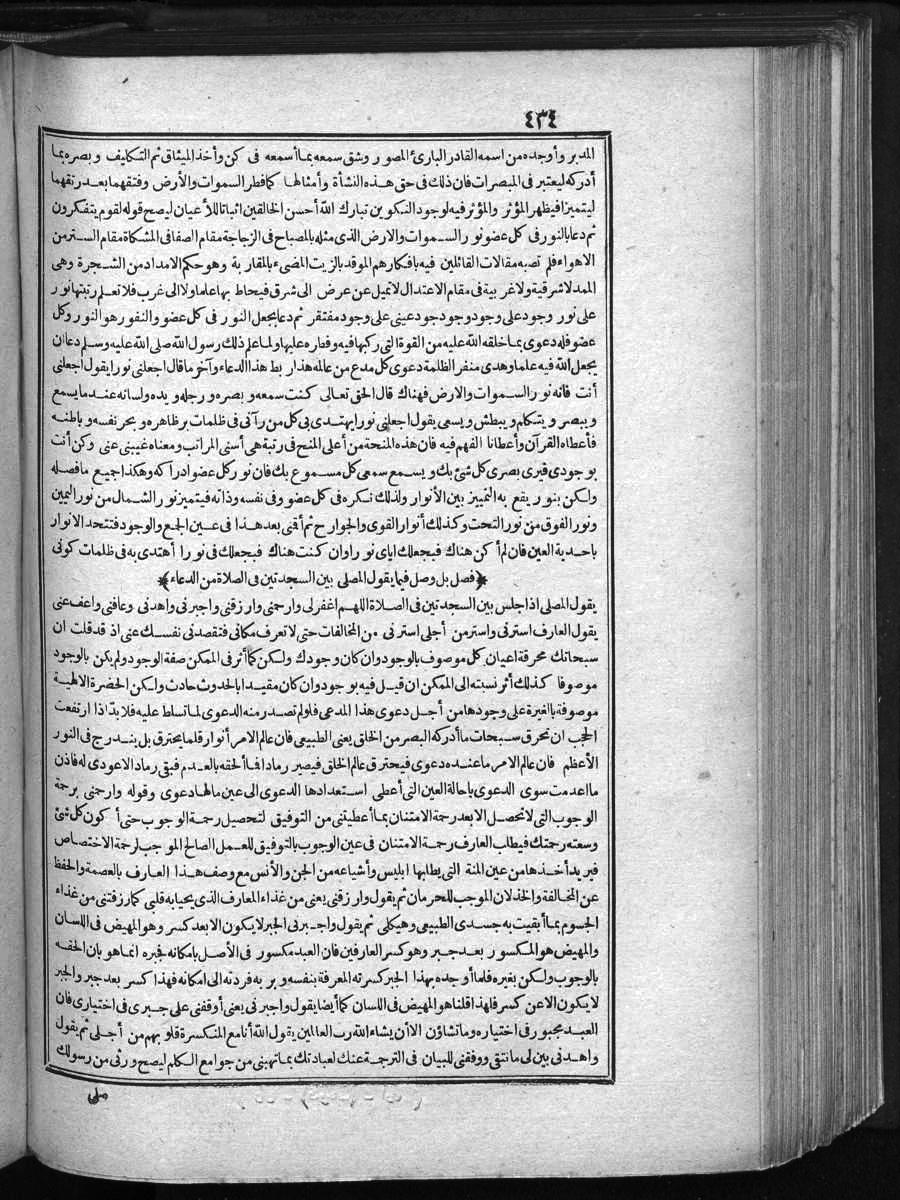 ٤٣٤
المدبر وأوجده من اسمه القادر البارئ المصور وشق سمعه بما أسمعه فى كن وأخذ الميثاق ثم التكليف وبصره بما
أدركه ليعتبر فى المبصرات فان ذلك فى حق هذه النشأة وأمثالها كما فطر السموات والأرض وفتقهما بعد رتقهما
ليتميزا فيظهر المؤثر والمؤثر فيه لوجود التكوين تبارك الله أحسن الخالقين اثباتا للأعيان ليصح قوله لقوم يتفكرون
ثم دعا بالنور فى كل عضو نور السموات والارض الذى مثله بالمصباح فى الزجاجة مقام الصفا فى المشكاة مقام الستر من
الاهواء فلم تصبه مقالات القائلين فيه بافكارهم الموقد بالزيت المضىء بالمقاربة وهو حكم الامداد من الشجرة وهى
الممد لا شرقية ولا غربية فى مقام الاعتدال لا تميل عن عرض الى شرق فيحاط بها علما ولا الى غرب فلا تعلم رتبتها نور
على نور وجود على وجود وجود جود عينى على وجود مفتقر ثم دعا بجعل النور فى كل عضو والنفور هو النور وكل
عضو فله دعوى بما خلقه الله عليه من القوة التى ركبها فيه وفطره عليها ولما علم ذلك رسول الله صلى الله عليه وسلم دعا ان
يجعل الله فيه علما وهدى منفر الظلمة دعوى كل مدع من عالمه هذا ربط هذا الدعاء وآخر ما قال اجعلنى نورا يقول اجعلنى
أنت فانه نور السموات والارض فهناك قال الحق تعالى كنت سمعه وبصره ورجله ويده ولسانه عند ما يسمع
ويبصر ويتكلم ويبطش ويسعى يقول اجعلنى نورا يهتدى بى كل من رآنى فى ظلمات بر ظاهره وبحر نفسه وباطنه
فأعطاه القرآن وأعطانا الفهم فيه فان هذه المنحة من أعلى المنح فى رتبة هى أسنى المراتب ومعناه غيبنى عنى وكن أنت
بوجودى فيرى بصرى كل شئ بك ويسمع سمعى كل مسموع بك فان نور كل عضو ادراكه وهكذا جميع ما فصله
ولكن بنور يقع به التمييز بين الأنوار ولذلك نكره فى كل عضو وفى نفسه وذاته فيتميز نور الشمال من نور اليمين
ونور الفوق من نور التحت وكذلك أنوار القوى والجوارح ثم أفنى بعد هذا فى عين الجمع والوجود فتتحد الانوار
باحدية العين فان لم أكن هناك فبجعلك اياى نورا وان كنت هناك فبجعلك فى نورا أهتدى به فى ظلمات كونى
﴿فصل بل وصل فيما يقول المصلى بين السجدتين فى الصلاة من الدعاء﴾
يقول المصلى اذا جلس بين السجدتين فى الصلاة اللهم اغفر لى وارحمنى وارزقنى واجبرنى واهدنى وعافنى واعف عنى
يقول العارف استرنى واستر من أجلى استرنى من المخالفات حتى لا تعرف مكانى فتقصدنى نفسك عنى اذ قد قلت ان
سبحاتك محرقة اعيان كل موصوف بالوجود وان كان وجودك ولكن كما أثر فى الممكن صفة الوجود ولم يكن بالوجود
موصوفا كذلك أثر نسبته الى الممكن ان قيل فيه بوجود وان كان مقيدا بالحدوث حادث ولكن الحضرة الالهية
موصوفة بالغيرة على وجودها من أجل دعوى هذا المدعى فلو لم تصدر منه الدعوى لما تسلط عليه فلا بد اذا ارتفعت
الحجب ان تحرق سبحات ما أدركه البصر من الخلق يعنى الطبيعى فان عالم الامر أنوار قلما يحترق بل يندرج فى النور
الأعظم فان عالم الامر ما عنده دعوى فيحترق عالم الخلق فيصير رمادا فما ألحقه بالعدم فبقى رماد الا دعوى له فاذن
ما اعدمت سوى الدعوى باحالة العين التى أعطى استعدادها الدعوى الى عين مالها دعوى وقوله وارحمنى برحمة
الوجوب التى لا تحصل الا بعد رحمة الامتنان بما أعطيتنى من التوفيق لتحصيل رحمة الوجوب حتى أكون كل شئ
وسعته رحمتك فيطلب العارف رحمة الامتنان فى عين الوجوب بالتوفيق للعمل الصالح الموجب لرحمة الاختصاص
فيريد أخذها من عين المنة التى يطلبها ابليس وأشياعه من الجن والأنس مع وصف هذا العارف بالعصمة والحفظ
عن المخالفة والخذلان الموجب للحرمان ثم يقول وارزقنى يعنى من غذاء المعارف الذى يحيا به قلبى كما رزقتنى من غذاء
الجسوم بما أبقيت به جسدى الطبيعى وهيكلى ثم يقول واجبرنى الجبر لا يكون الا بعد كسر وهو المهيض فى اللسان
والمهيض هو المكسور بعد جبر وهو كسر العارفين فان العبد مكسور فى الأصل بامكانه فجبره انما هو بان الحقه
بالوجوب ولكن بغيره فلما أوجده بهذا الجبر كسرته المعرفة بنفسه وبربه فردته الى امكانه فهذا كسر بعد جبر والجبر
لا يكون الا عن كسر فلهذا قلنا هو المهيض فى اللسان كما أيضا يقول واجبرنى يعنى أوقفنى على جبرى فى اختيارى فان
العبد مجبور فى اختياره وما تشاؤن الا أن يشاء الله رب العالمين يقول الله أنا مع المنكسرة قلوبهم من أجلى ثم يقول
واهدنى بين لى ما تتقى ووفقنى للبيان فى الترجمة عنك لعبادك بما تهبنى من جوامع الكلم ليصح ورثى من رسولك
صلى